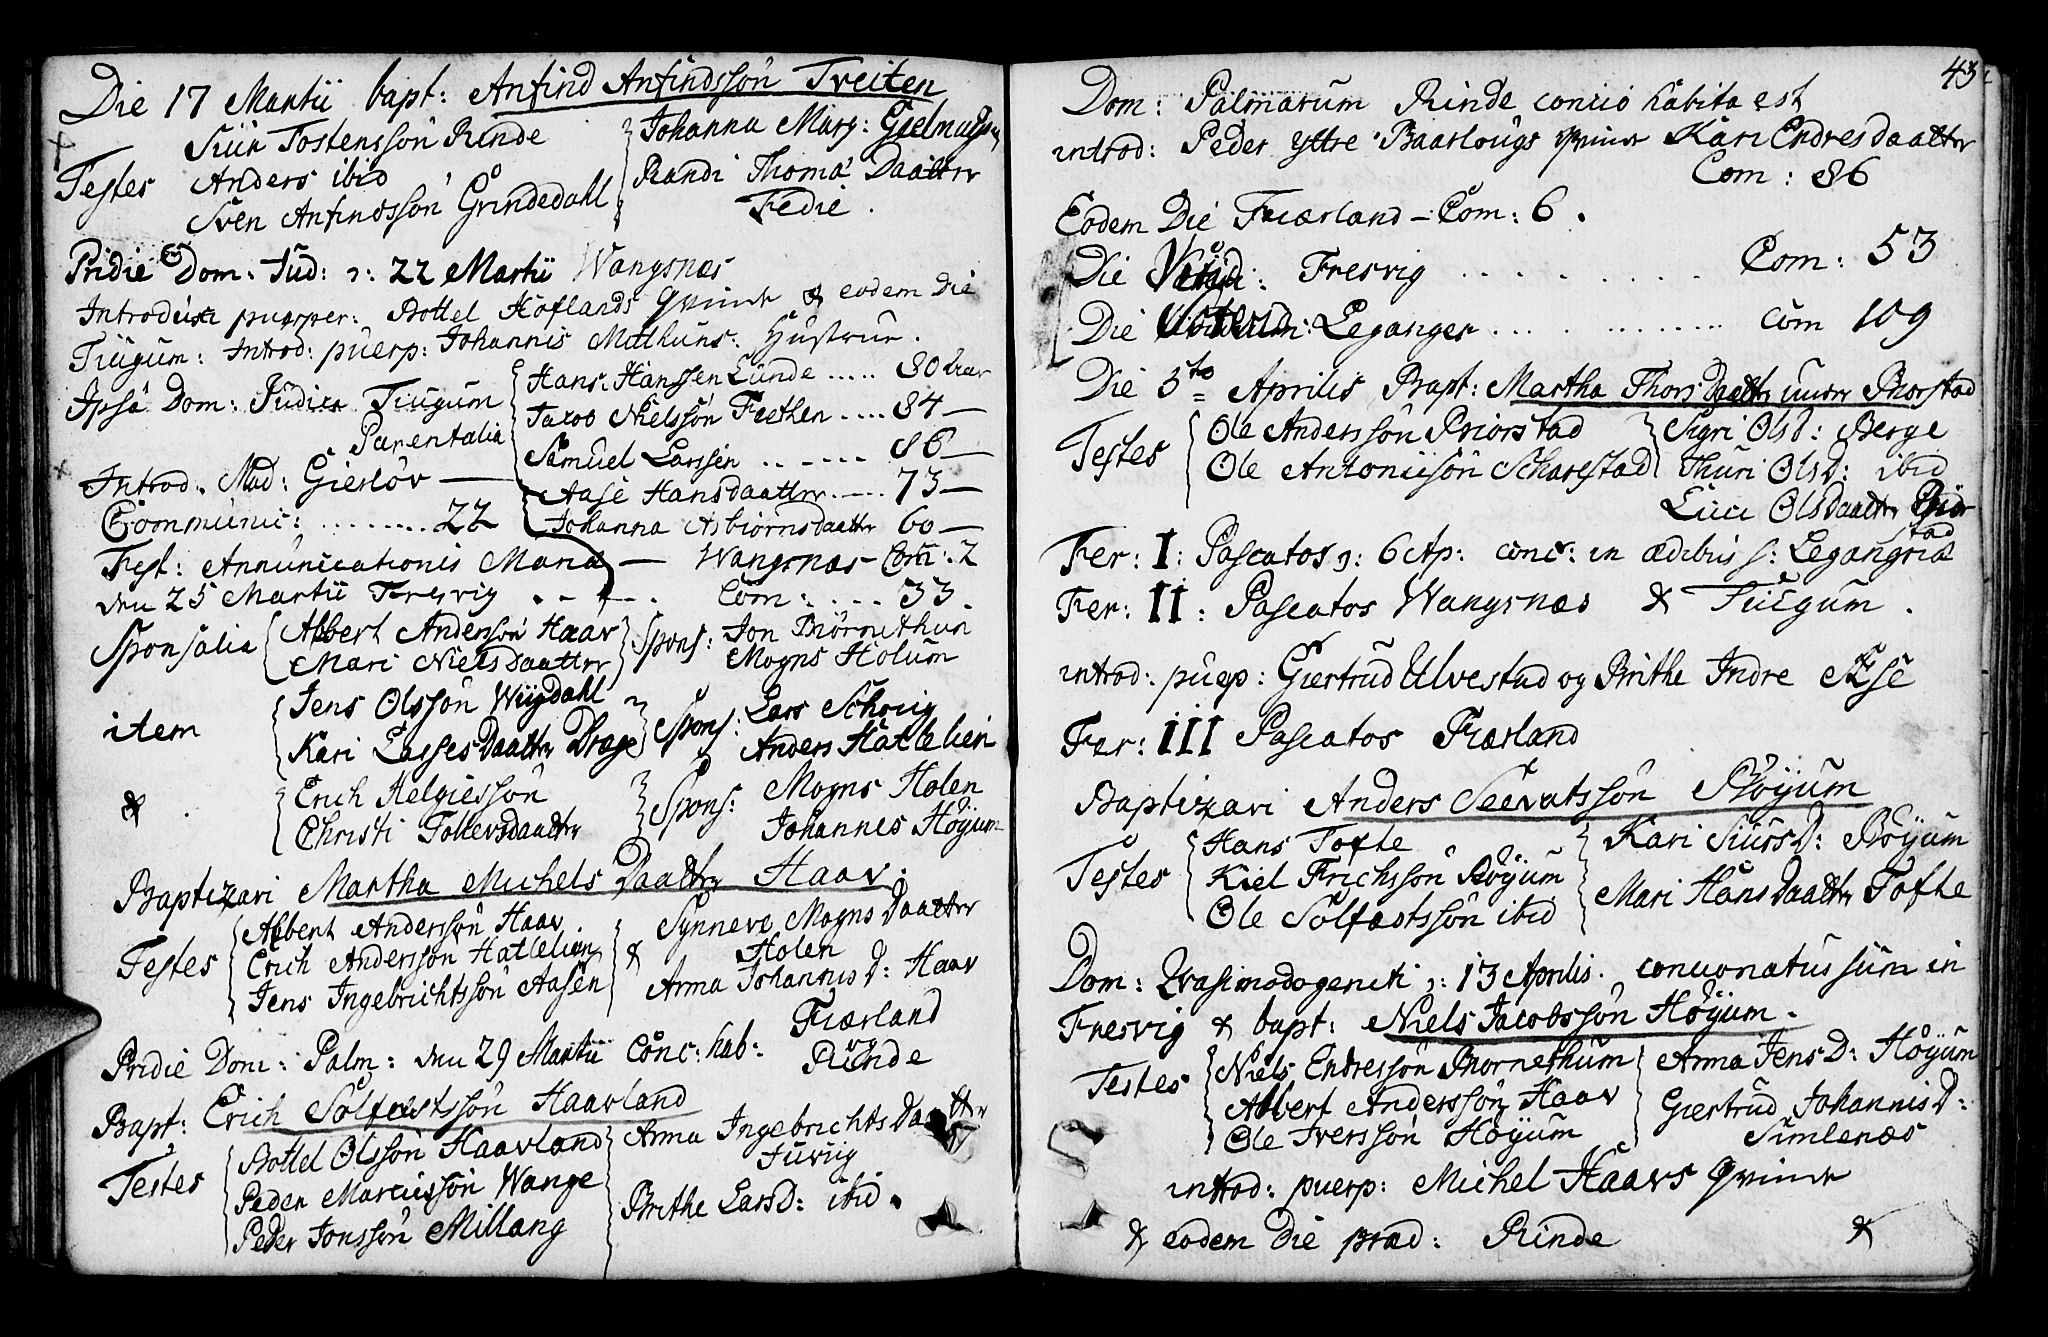 Die 17 Martii bapt: Anfind Anfindssön Treiten
Siur Tostenssön Rinde
Johanna Marg: Gielmuyden
Testes Anders ibid
Randi Thomæ Daatter
Sven Anfindssön Grindedahl
Fedie.
Pridie Dom: Jud: ɔ: 22 Martii Wangsnæs
Introduxi puerper: Bottel Höflands Qvinde & eodem Die
Tiugum: Introd: puerp: Johannis Hustrue.
Ipsa Dom: Judica Tiugum
Parentalia
Hans Hanssen Lunde ..... 80 aar
Jacob Nielssön Feethen ..... 84 —
Samuel Larssen ....... 86 —
Introd: Mad: Gierlöv — Aase Hansdaatter ..... 73 —
Communic: ........ 22 Johanna Asbiörnsdaatter 60 —
Fest: Annunciationis Mariæ — Wangsnæs — Com: 2
den 25 Martii Fresvig . . . . Com: .... 33.
Sponsalia Albert Anderssön Haav
Mari Niels Daatter
Spons: Jon Biörnethun
Mogns Holum
item Jens Olssön Wiigdahl
Kari Lasses Daatter Drage
Spons: Lars Schrivig
Anders Hatlelien
& . Erich Helgiessön
Christi Tollevsdaatter
Spons: Mogns Holen
Johannes Höyum
Baptizavi Martha Michels Daatter Haav.
Testes Albert Anderssön Haav
Erich Anderssön Hatlelien
Jens Ingebrichtssön Aasen
& Synneve Mogns Daatter
Holen
Anna Johannis D: Haav
Pridie Dom: Palm: den 29 Martii Conc: hab: Fiærland
og
Rinde
Bapt: Erich Solfestssön Haavland
Testes Bottel Olssön Haavland
Peder Marcussön Wange
Peder Jonssön Millang
Anna Ingebrichts Daatter
Juviig
Brithe Larsd: ibid.
43
Dom: Palmarum Rinde concio habita est
introd: Peder yttre Baarlougs Qvinde Kari Endresdaatter
Com: 86
Eodem Die Fiærland — Com: 6.
Die Virid: Fresvig . . . . . . . . Com: 53
Die Leganger . . . ........ com 109
Die 5to Aprilis Bapt: Martha Thors Daatter Rhorstad
Testes Ole Anderssön Rriorstad
Ole Antoniisön Scharestad
Sigri Olsd: Berge
Thuri Olsd: ibid
Luci Olsdaatter
stad
Fer: I: Pascatos ɔ: 6 Ap: conc: in ædibus s: Legangriæ
Fer: II: Pascatos Wangsnæs & Tiugum.
introd: puerp: Giertrud Ulvestad og Brithe Indre Æse
Fer: III Pascatos Fiærland
Baptizavi Anders Seevatssön Böyum
Testes Hans Tofte
Kiel Erichssön Böyum
Ole Solfæstssön ibid
Kari Siurs D: Böyum
Mari Hans Daatter Tofte
Dom: Qvasimodogeniti ɔ: 13 Aprilis. concionatus sum in
Fresvig & bapt: Niels Jacobssön Höyum.
Testes Niels Endressön Biornethum
Albert Anderssön Haav
Ole Iverssön Höyum
Anna Jens D: Höyum
Giertrud Johannis D:
Simlenæs
introd: puerp: Michel Haavs Qvinde
& eodem Die præd: Rinde &